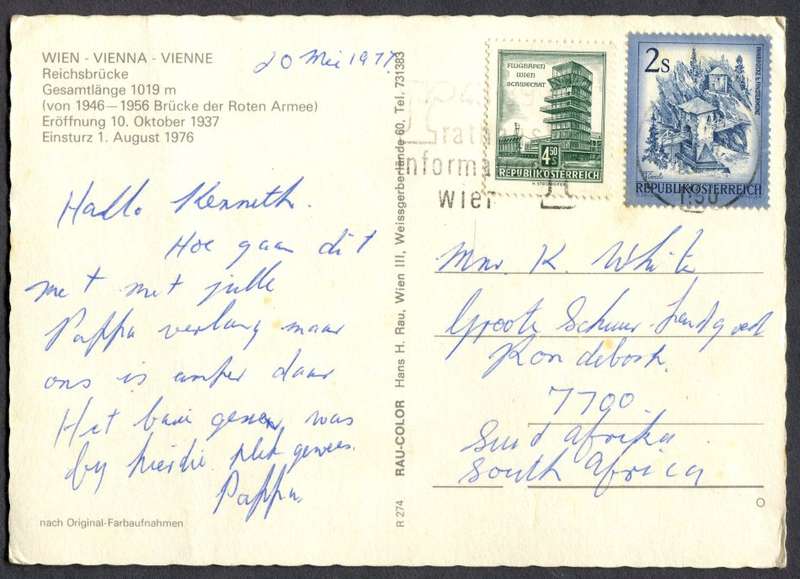 WIEN - VIENNA - VIENNE
Reichsbrücke
Gesamtlänge 1019 m
(von 1946 — 1956 Brücke der Roten Armee)
Eröffnung 10. Oktober 1937
Einsturz 1. August 1976
20 Mei 1977
Hallo Kenneth.
Hoe gaan dit
met julle
Pappa verlang maar
ons is amper daar
Het baie gesien was
by hierdie plek gewees.
Pappa.
nach Original-Farbaufnahmen
R 274 RAU-COLOR Hans H. Rau, Wien III, Weissgerberlände 60, Tel. 731383
FLUGHAFEN
WIEN
SCHWECHAT
4.50 S
REPUBLIK ÖSTERREICH
2s
REPUBLIK ÖSTERREICH
Mnr K. White
Groote Schuur
Rondebosh.
7700
Suid Afrika
South Africa